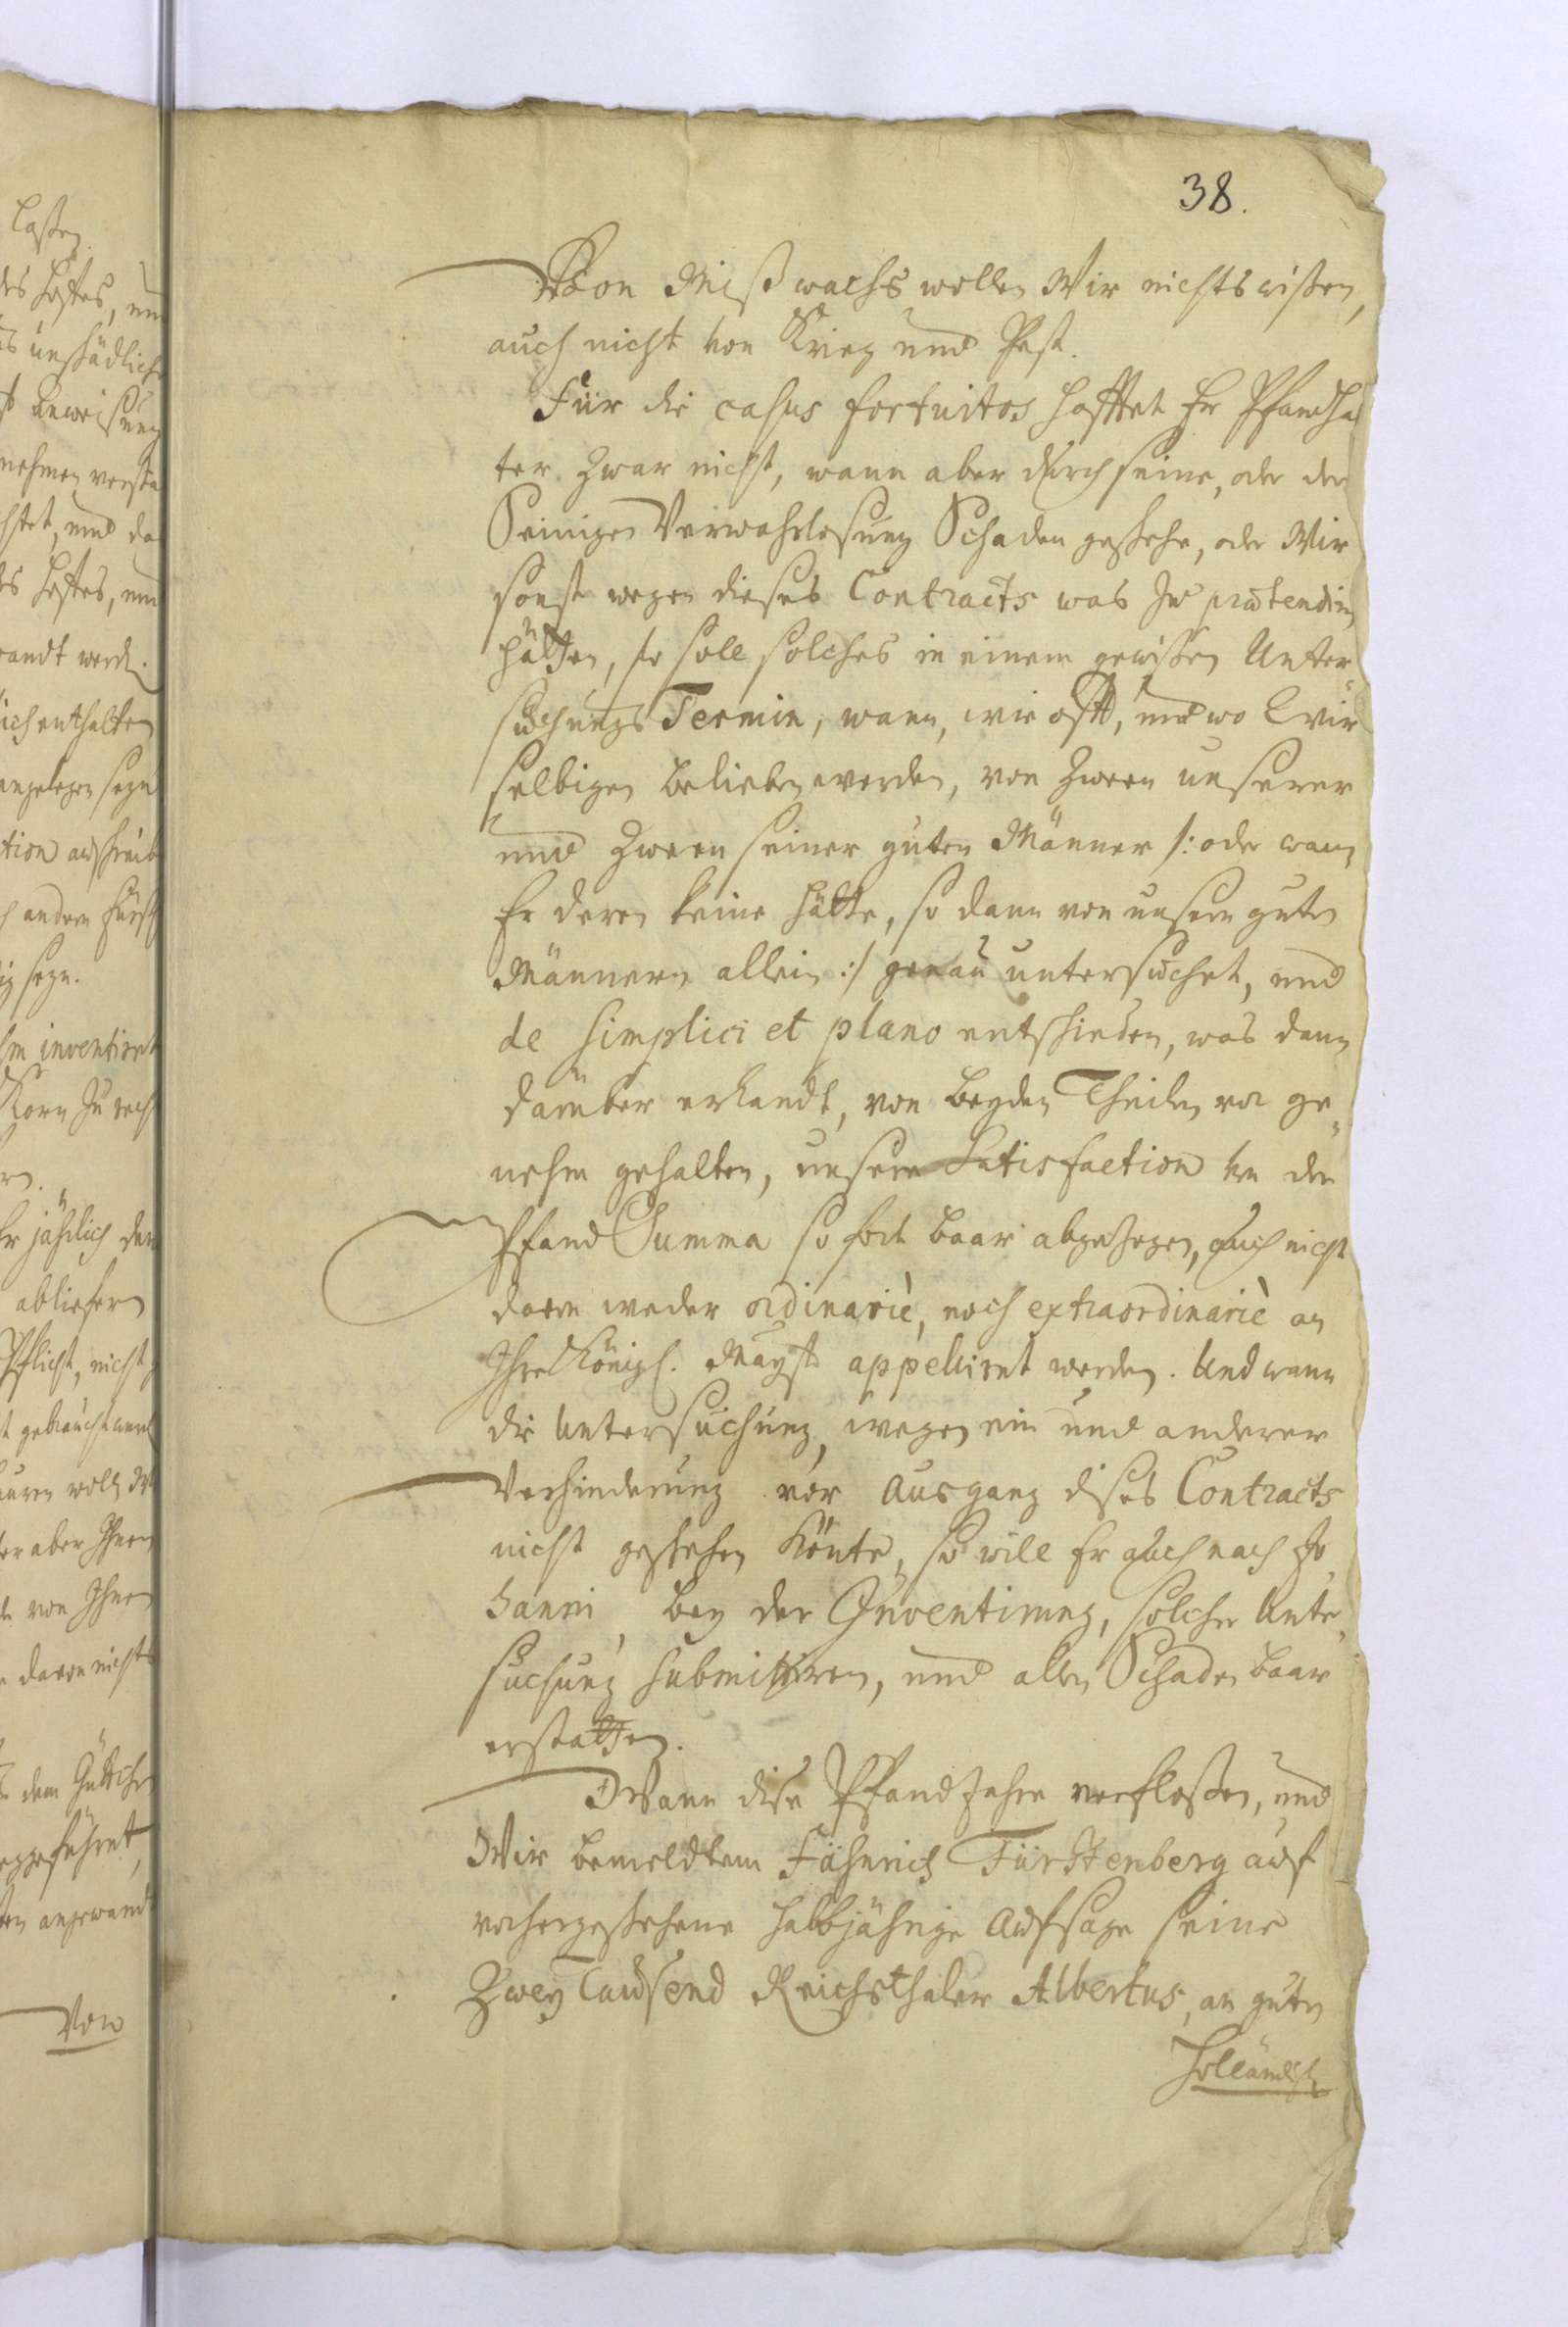 38.
Von Mißwachs wollen Wir nichts wißen,
auch nicht von Krieg und Pest.
Für die casus fortuitos hafftet Er Pfandhal
ter zwar nicht, wann aber durch seine, oder der
Seinigen Verwahrlosung Schaden geschehe, oder Wir
sonst wegen dieses Contracts was zu prætendiren
hätten, so soll solches in einem gewißen Unter-
suchungs Termin, wann, wie offt, und wo Wir
selbigen belieben werden, von zween unserer
und zween seiner guten Männer /: oder wann
Er deren keine hätte, so dann von unsern guten
Männern allein :/ genau untersuchet, und
de simplici et plano entschieden, was dann
darüber erkandt, von beyden Theilen vor ge-
nehm gehalten, unsere Satisfaction von der
Pfand Summa so fort baar abgezogen, auch nicht
davon weder ordinariè, noch extraordinariè an
Ihre Königl. Mayst. appelliret werden. Und wann
die Untersuchung, wegen ein und anderer
Verhinderung vor Ausgang dises Contracts
nicht geschehen könte, so will Er auch nach Jo-
hanni, bey der Inventirung, solcher Unter-
suchung submittiren, und allen Schaden baar
erstatten.
Wann dise Pfandjahre verfloßen, und
Wir bemeldtem Fähnrich Fürstenberg auf
vorhergeschehene halbjährige Aufsage seine
Zwey Tausend Reichsthaler Albertus, an guten
Holländsch
laßen.
des Hofes, und
nehmen
des Hofes, und
wandt werd.
sich enthalten
angelegen seyn
inventiret
Korn zu
Er jährlich
abliefern
Pflicht, nicht
aber Ihnen
von Ihnen
davon nichts
angewandt
Von